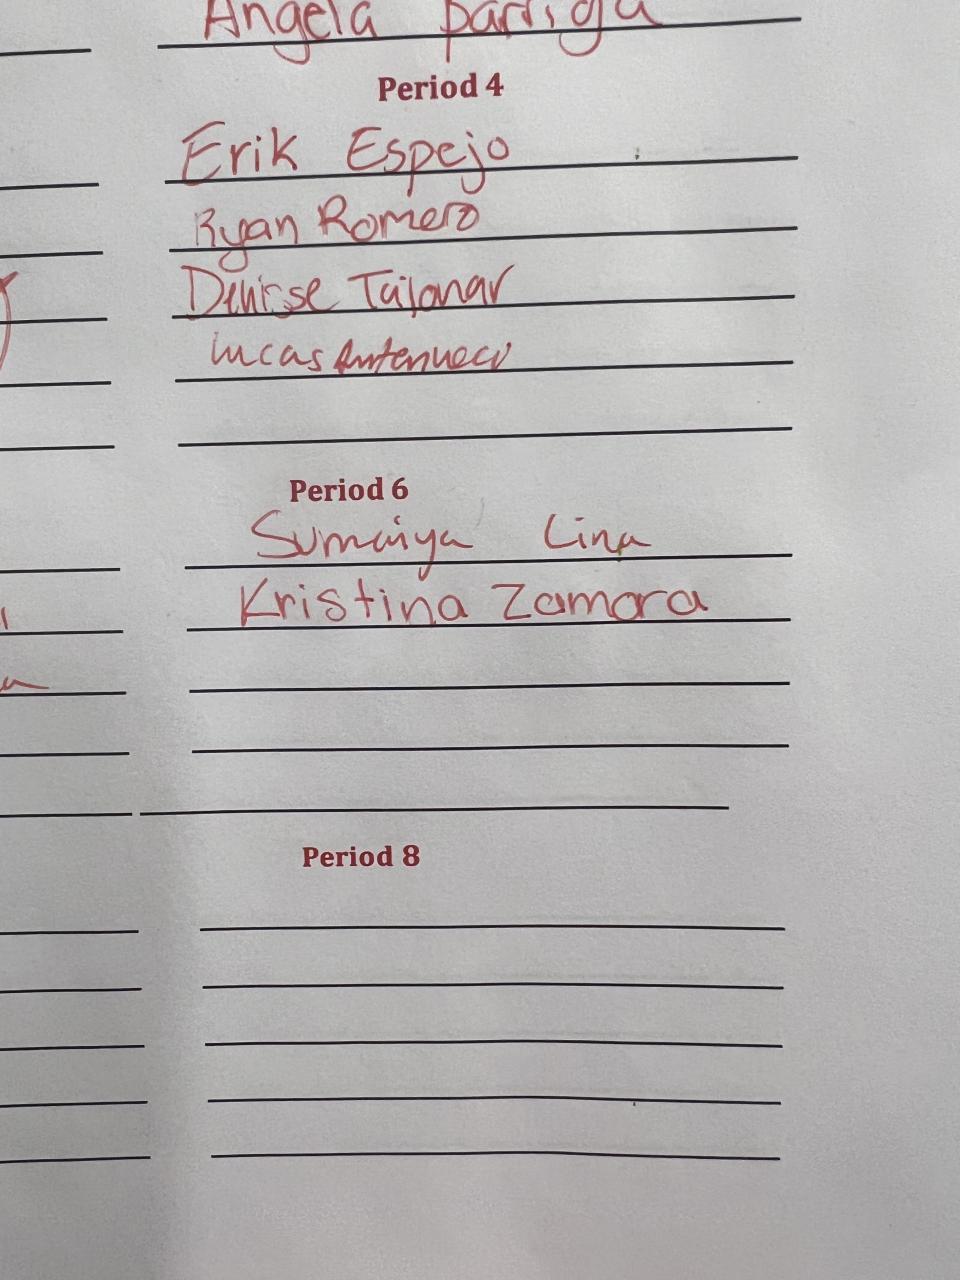 Angela
Period 4
Erik Espejo
Ryan Romero
Denisse
Lucas
Period 6
Sumaiya Lina
Kristina Zamora
Period 8